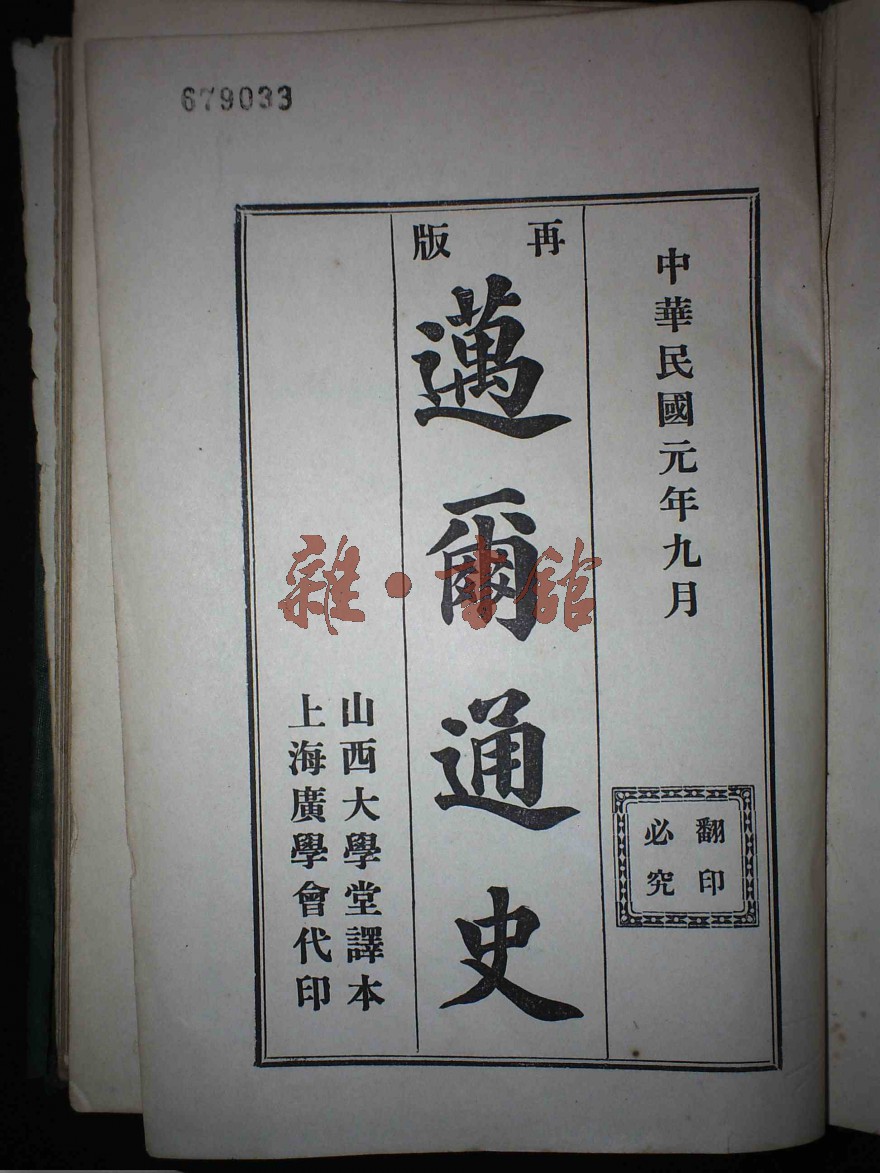 679033
中華民國元年九月
翻印
必究
再版
邁爾通史
山西大學堂譯本
上海廣學會代印
雜·書館